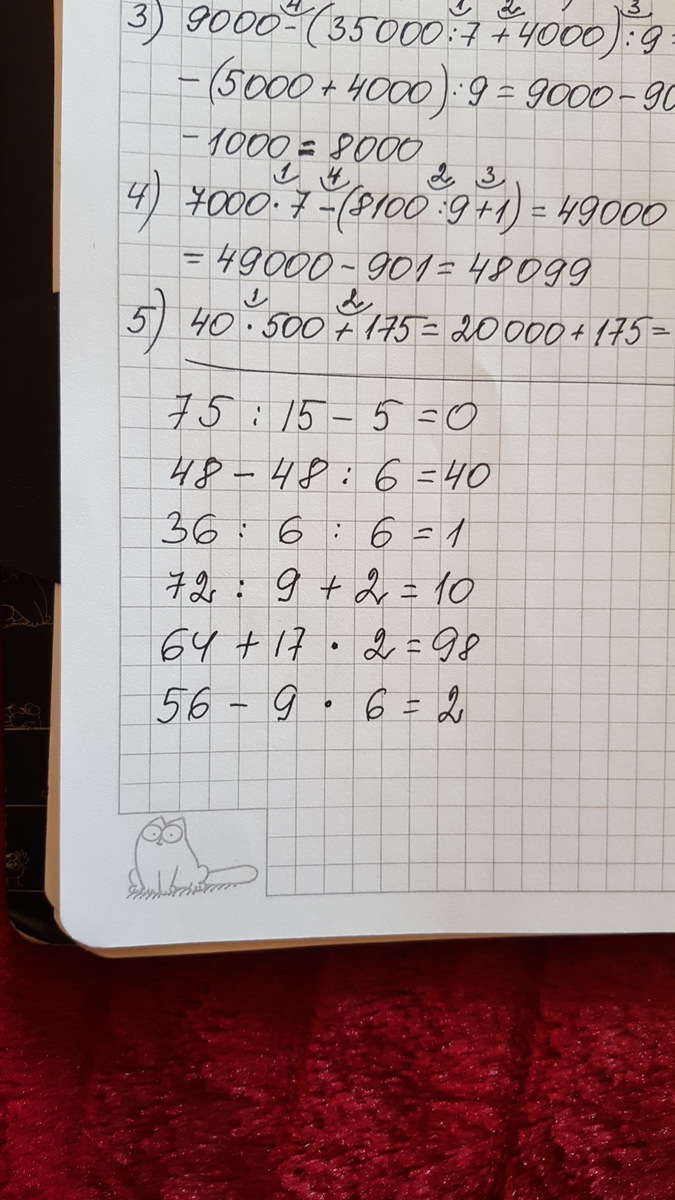 3) 9000-(35000:7+4000):9=
-(5000+4000):9=9000-90
-1000=8000
4) 7000·7-(8100:9+1)=49000
=49000-901=48099
5) 40·500+175=20000+175=
75 : 15 - 5 = 0
48 - 48 : 6 = 40
36 : 6 : 6 = 1
72 : 9 + 2 = 10
64 + 17 · 2 = 98
56 - 9 · 6 = 2